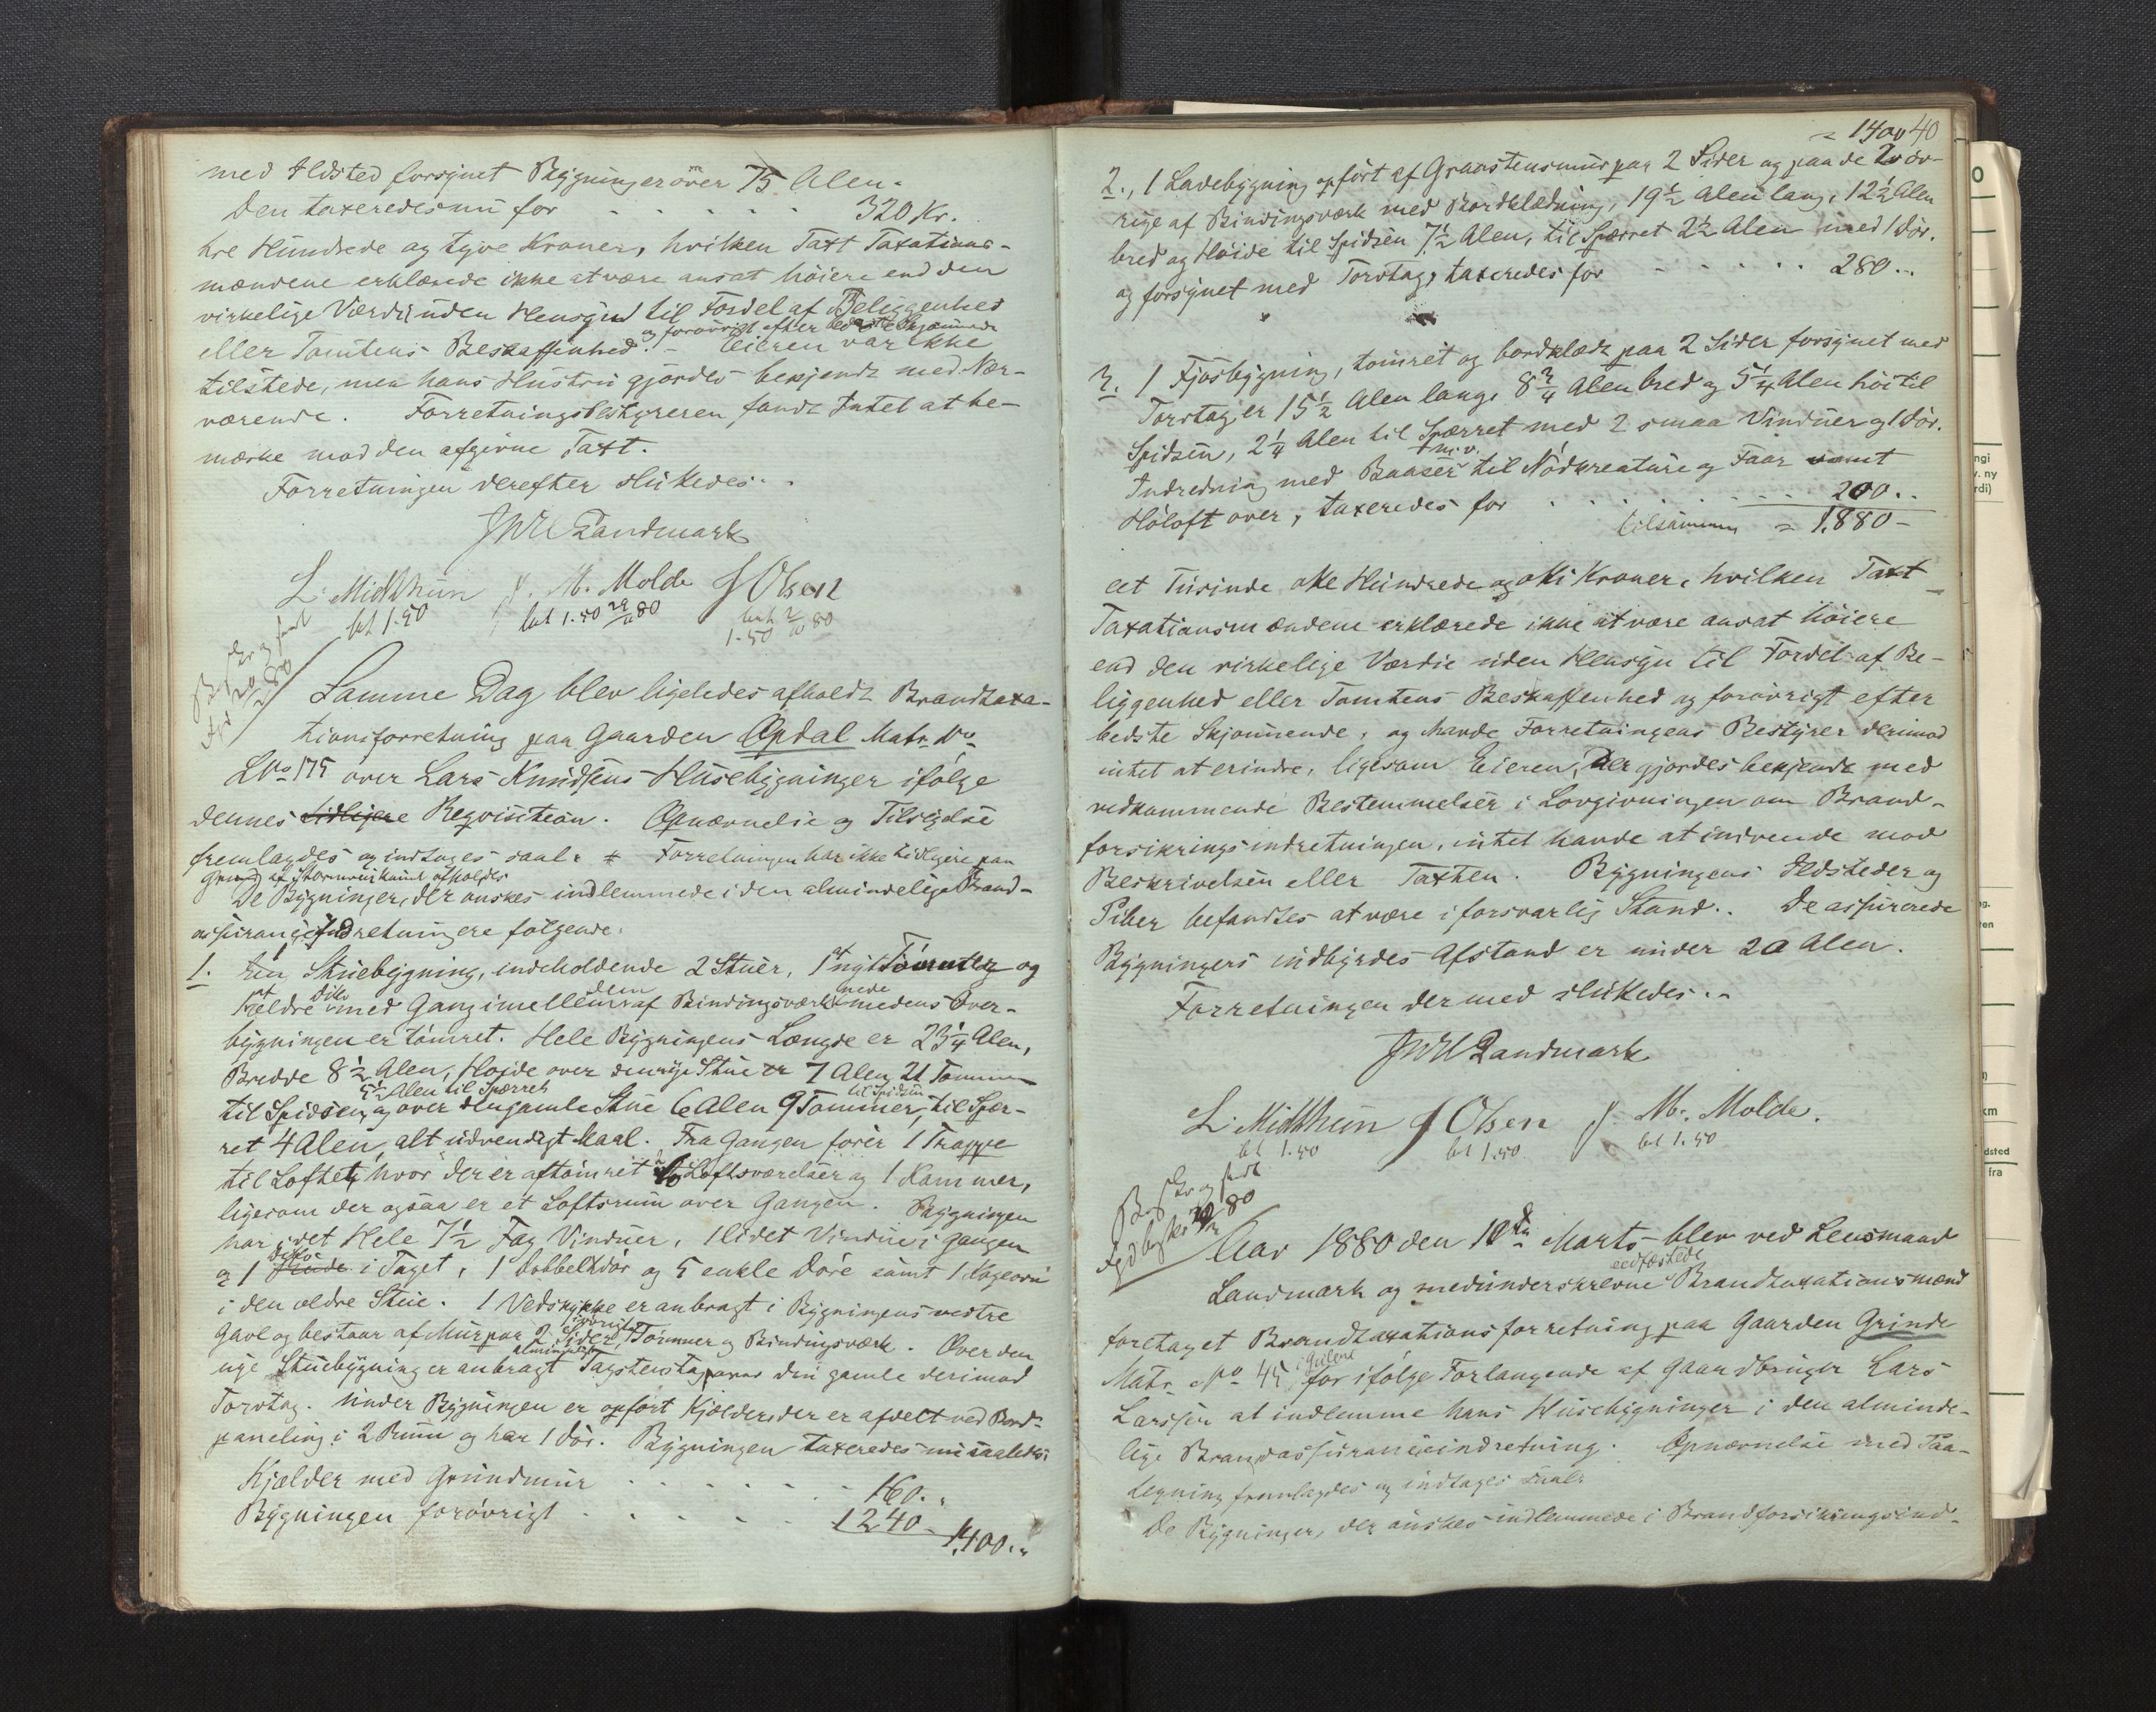 med Ildsted forsynet Bygninger över 75 Alen.
Den taxeredes nu for . . . . . 320 Kr.
tre Hundrede og tyve Kroner, hvilken Taxt Taxations-
mændene erklærede ikke at være ansat höiere end den
virkelige Værdi uden Hensyn til Fordel af Beliggenhed
og forövrigt efter bedste Skjönnende
eller Tomtens Beskaffenhed. - Eieren var ikke
tilstede, men hans Hustru gjordes bekjendt med Nær-
værende. Forretningsbestyreren fandt Intet at be-
mærke mod den afgivne Taxt.
Forretningen derefter sluttedes. .
JWLandmark
L. Midthun J. M. Molde J Olsen
bet 1.50 bet 1.50 29/11 80 bet 2/11 80
1.50
Samme Dag blev ligeledes afholdt Brandtaxa-
tionsforretning paa Gaarden Opdal Matr. No
LNo 175 over Lars Knudsens Husebygninger ifölge
dennes tidligere Reqvisition. Opnævnelse og Tilsigelse
fremlagdes og indtages saal: * Forretningen har ikke tidligere paa
Grund af Stormveir kunnet afholdes
De Bygninger, der önskes indlemmede i den almindelige Brand-
assuranceindretning ere fölgende:
1. Een Stuebygning, indeholdende 2 Stuer, 1 et nyt Tömret og
1 ældre dito med Gang imellem dem af Bindingsværk nede medens Over-
bygningen er tömret. Hele Bygningens Længde er 23 1/4 Alen,
Bredde 8 1/2 Alen, Höide over den nye Stue er 7 Alen 21 Tommer
5 1/2 Alen til Spærret til Spidsen
til Spidsen, og over den gamle Stue 6 Alen 9 Tommer, til Spær-
ret 4 Alen, alt udvendigt Maal. Fra Gangen förer 1 Trappe
til Loftet, hvor der er aftömret 2 Loftsværelser og 1 Kammer,
ligesom der ogsaa er et Loftsrum over Gangen. Bygningen
har i det Hele 7 1/2 Fag Vinduer, 1 lidet Vindue i Gangen
og 1 dito i Taget, 1 Dobbeltdör og 5 enkle Döre samt 1 Kogeovn
i den ældre Stue. 1 Vedskykke er anbragt i Bygningens vestre
Gavl og bestaar af Mur paa 2 Sider, forövrigt Tömmer og Bindingsværk. Over den
nye Stuebygning er anbragt almindeligt Tagstenstag, over den gamle derimod
Torvtag. Under Bygningen er opfört Kjælder, der er afdelt ved Bord-
paneling i 2 Rum og har 1 Dör. Bygningen taxeredes nu saaledes:
Kjælder med Grundmur . . . . . . 160. "
Bygningen forövrigt . . . . . . 1240 - 1,400. "
= 1400 40
2., 1 Ladebygning opfört af Graastensmur paa 2 Sider og paa de 2 öv-
rige af Bindingsværk med Bordklædning, 19 1/2 Alen lang, 12 1/2 Alen
bred og Höide til Spidsen 7 1/2 Alen, til Spærret 2 1/2 Alen med 1 Dör.
og forsynet med Torvtag, taxeredes for . . . . . 280 ..
3. 1 Fjösbygning, tömret og bordklædt paa 2 Sider forsynet med
Torvtag er 15 1/2 Alen lang, 8 3/4 Alen bred og 5 1/4 Alen höi til
Spidsen, 2 1/4 Alen til Spærret med 2 smaa Vinduer og 1 Dör.
Indredning med Baaser m.v. til Nödkreature og Faar samt
Höloft over, taxeredes for . . . . . . 200 ..
tilsammen = 1,880 -
eet Tusinde otte Hundrede og otti Kroner, hvilken Taxt
Taxationsmændene erklærede ikke at være ansat höiere
end den virkelige Værdie uden Hensyn til Fordel af Be-
liggenhed eller Tomtens Beskaffenhed og forövrigt efter
bedste Skjönnende, og havde Forretningens Bestyrer derimod
intet at erindre, ligesom Eieren, der gjordes bekjendt med
vedkommende Bestemmelser i Lovgivningen om Brand-
forsikringsindretningen, intet havde at indvende mod
Beskrivelsen eller Taxten. Bygningens Ildsteder og
Piber befandtes at være i forsvarlig Stand. De assurerede
Bygningers indbyrdes Afstand er under 20 Alen.
Forretningen dermed sluttedes. -
JWLandmark
L. Midthun J Olsen J. M. Molde.
bet 1.50 bet 1.50 bet 1.50
Aar 1880 den 10de Marts blev ved Lensmand
Landmark og medunderskrevne eedfæstede Brandtaxationsmænd
foretaget Brandtaxationsforretning paa Gaarden Grinde
Matr. No 45 for ifölge Forlangende af Gaardbruger Lars
Larssen at indlemme hans Husebygninger i den alminde-
lige Brandassuranceindretning. Opnævnelse med Paa-
tegning fremlagdes og indtages saal:
De Bygninger, der önskes indlemmede i Brandforsikringsind-